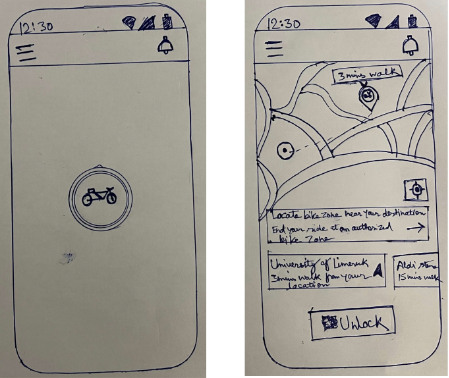 12:30
12:30
3 mins walk
Locate bike zone near your destination
End your ride at an authorized
bike Zone
University of Limerick
3 mins walk from your
location
Aldi store
15 mins walk
Unlock